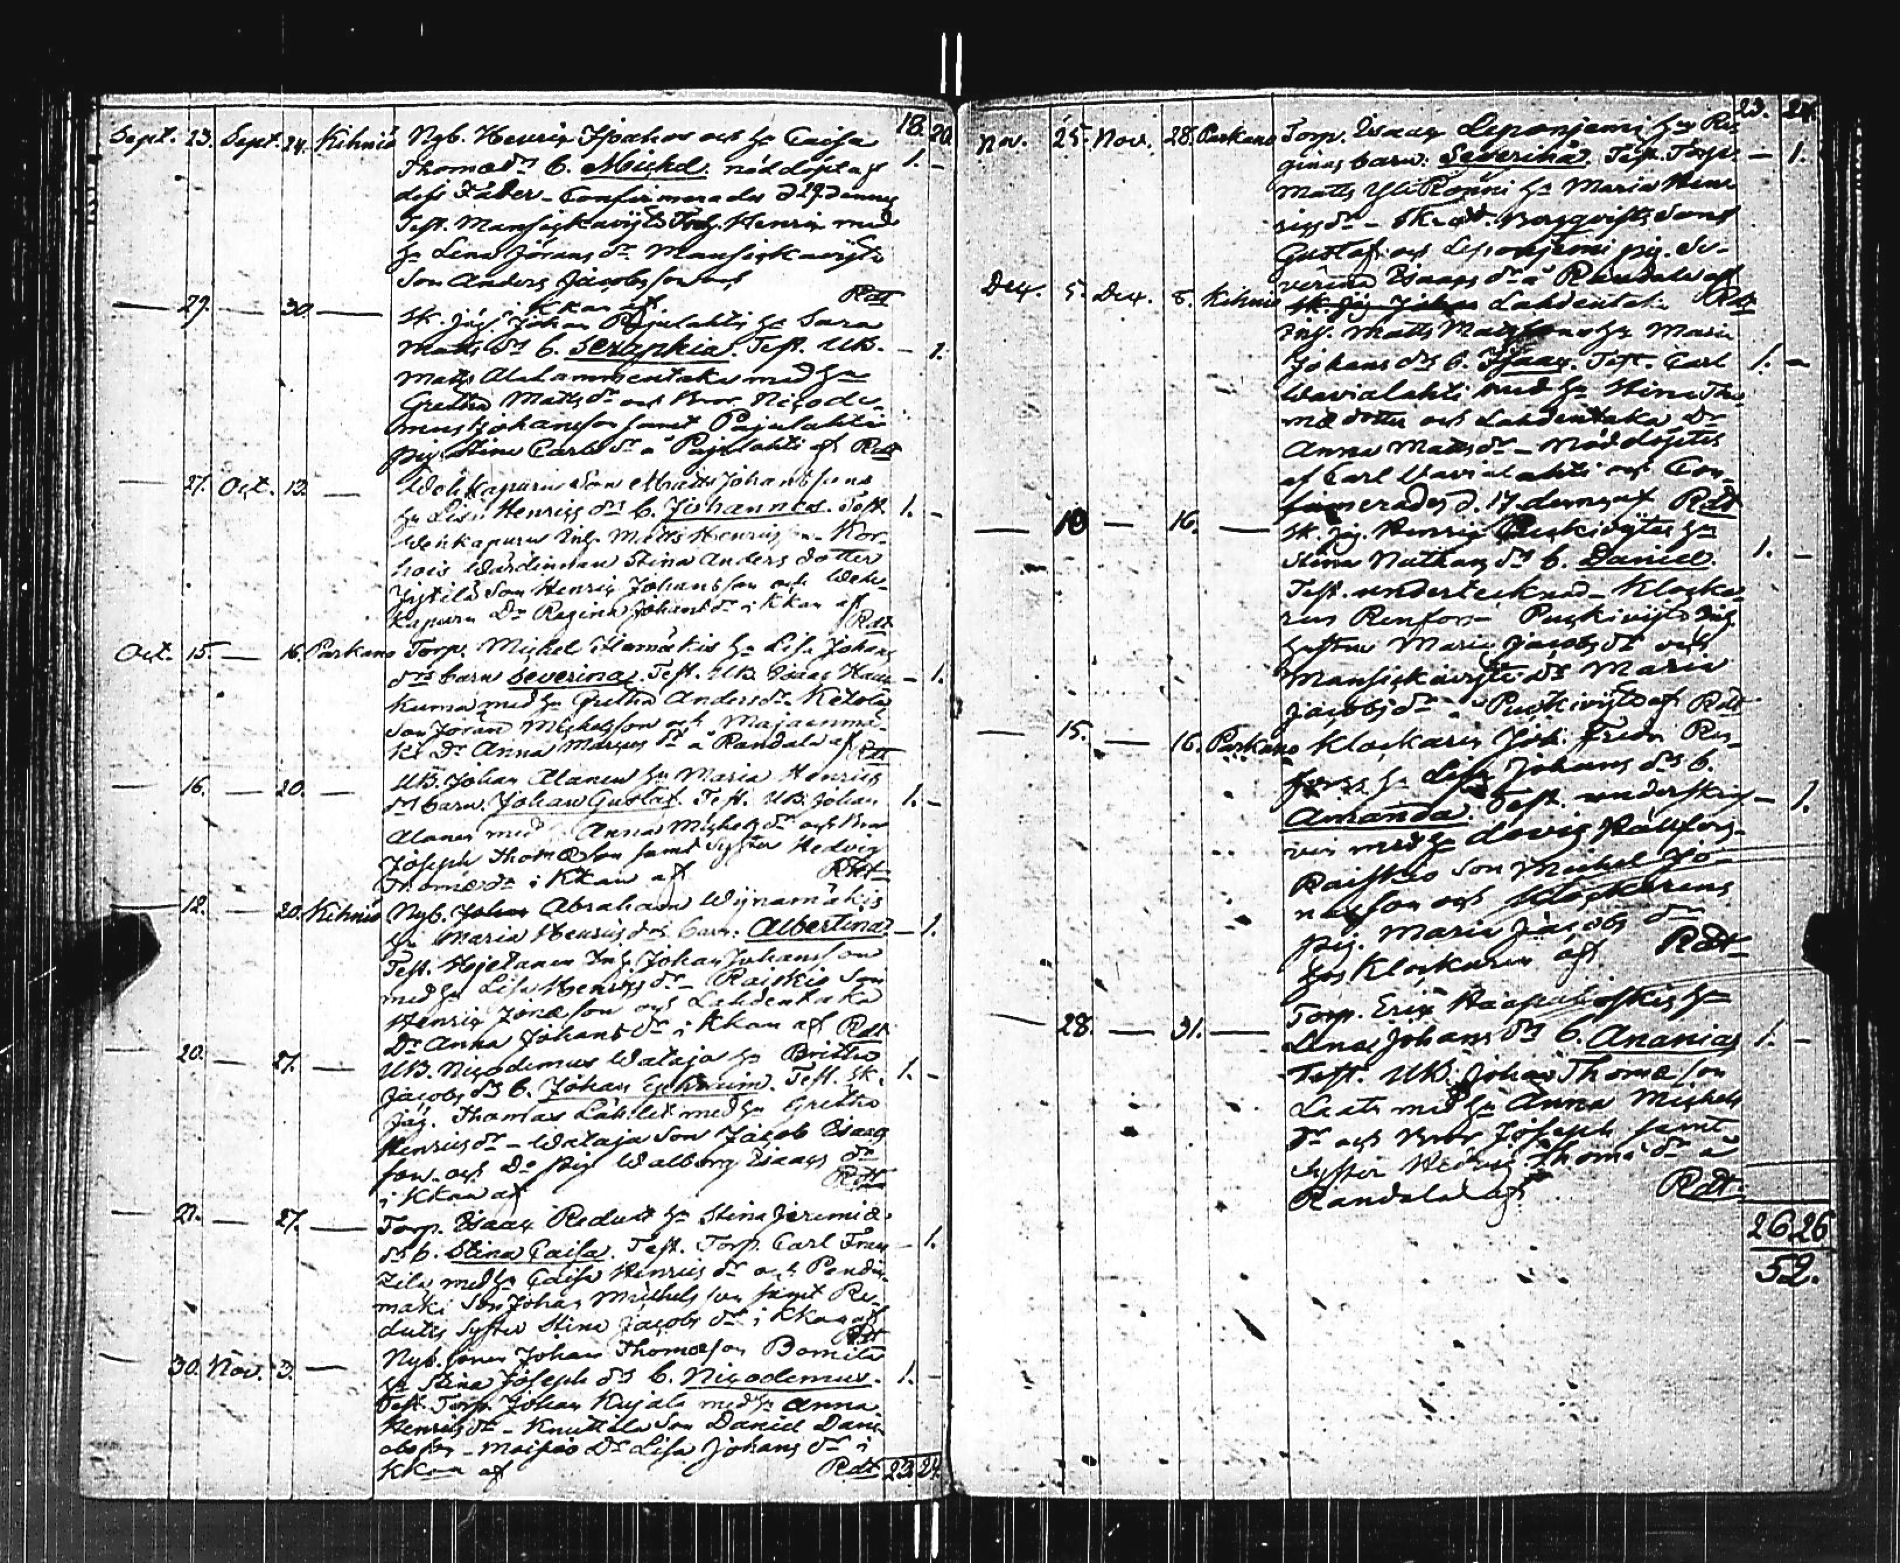 18. 20.
Sept. 23. Sept. 24. Kihniö Nyb. Henric Ispahos och h:u Caisa
Thomædr b. Michel. nöddöpt af 1. –
dess Fader – Confirmerades d 29 dennes
Test. Mansickavijta Inh. Henric med
h:u Lena Jörans dr Mansickavijta
Son Anders Jacobsson och
Rdt
— 29. — 30. — Sk. Jäg. Johan Pajulahtis h:u Sara
Matts dr b. Seraphia. Test. UB. – 1.
Matts Alahammentaka med h:u
Gretha Matts dr och Bror Nicode-
mus Johansson samt Pajulahti
pig. Stina Carls dr a Pajulahti af Rdt
— 27. Oct. 13. — Wehkapuru Son Matts Johanssons
h:u Lisa Henrics dr b. Johannes. Test. 1. –
Wehkapuru Inh. Matts Henricsson – Kor-
hois Wärdinnan Stina Anders dotter
Jystilä Son Henric Johansson och Weh-
kapuru Dr Regina Johans dr i Kkan af
Rdt
Oct. 15. — 16. Parkano Torp. Michel Alamäkis h:u Lisa Johans
drs barn Severina. Test. UB. Isaac Han- – 1.
kuma med h:u Gretha Anders dr. Ketola
Son Jöran Michelsson och Majaanmä-
ki Dr Anna Marcus dr a Randala af Rdt
— 16. — 20. — UB. Johan Alanen h:u Maria Henrics
dr barn Johan Gustaf. Test. UB. Johan 1. –
Alanen med Anna Michels dr och Bror
Joseph Thomæson samt Syster Hedvig
Thomæ dr i Kkan af Rdt
— 12. — 20. Kihniö Nyb. Abraham Wijnamäkis
h:u Maria Henrics drs barn. Albertina. – 1.
Test. Hjetanen Inh. Johan Johansson
med h:u Lisa Henrics dr – Raiskis Son
Henric Jonæson och Lahdentaka
Dr Anna Johans dr i Kkan af Rdt
— 20. — 27. — UB. Nicodemus Wataja h:u Britha
Jacobs dr b. Johan Ephraim. Test. Sk. 1. –
Jäg. Thomas Lähdet med h:u Gretha
Henrics dr – Wataja Son Jacob Isacs
son och Dr pig. Walborg Isaacs dr
i Kkan af Rdt
— 21. — 27. — Torp. Isaac Redutt h:u Stina Jeremiæ
drs b. Stina Caisa. Test. Torp. Carl Fran- – 1.
zila med h:u Caisa Henrics dr och Pendin-
mäki Son Johan Michelsson samt Re-
dutts Syster Stina Jacobs dr i Kkan af
Rdt
— 30. Nov. 3. — Nyb. Sonen Johan Thomæson Bomila
h:u Stina Joseph drs b. Nicodemus. 1. –
Test. Torp. Johan Kujala med h:u Anna
Henrics dr – Knuttila Son Daniel Dani-
elsson – Dr Lisa Johans dr i
Kkan af Rdt 23. 24.
23. 24.
Nov. 25. Nov. 28. Parkano Torp. Isaac Leponjemi h:u Re-
ginas barn. Severina. Test. Torp. – 1.
Matts Yli Ronni h:u Maria Hen-
rics dr – Skräd. Bergqvists Son
Gustaf och Leponjemi pig. Se-
verina Isaacs dr a Randala af
Rdt
Dec. 5. Dec. 8. Kihniö Lahdentaka
Inh. Matts Matssons h:u Maria
Johans drs b. Isaac. Test. Carl 1. –
Wavialahti med h:u Stina Tho-
mæ dotter och Lahdentaka Dr
Anna Matts dr – Nöddöptes
af Carl Wavialahti och Con-
firmerades d. 17 dennes af Rdt
— 10 — 16. — Sk. Jäg. Henric Puskivijtas h:u
Stina Nathans dr b. Daniel. 1. –
Test. undertecknad – Klocka-
ren Renfors – Puskivijta Inh.
hustru Maria Jacobs dr och
Mansickavijta dr Maria
Jacobs dr a Puskivijta af Rdt
— 15. — 16. Parkano Klockaren Joh. Fredr. Ren-
fors h:u Lisa Johans drs b.
Amanda. Test. underskrif- – 1.
ven med h:u Lovisa Hällfors –
Raiskio Son Michel Jo-
næsson och Klockarens
pig. Maria Jacobs dr
hos Klockaren af Rdt
— 28. — 31. — Torp. Eric Haapakoskis h:u
Lenas Johans drs b. Ananias 1. –
Test. UB. Johan Thomæson
Laati med h:u Anna Michels
dr och Bror Joseph samt
Syster Hedvig Thomæ dr a
Randala af Rdt.
26 26
52.